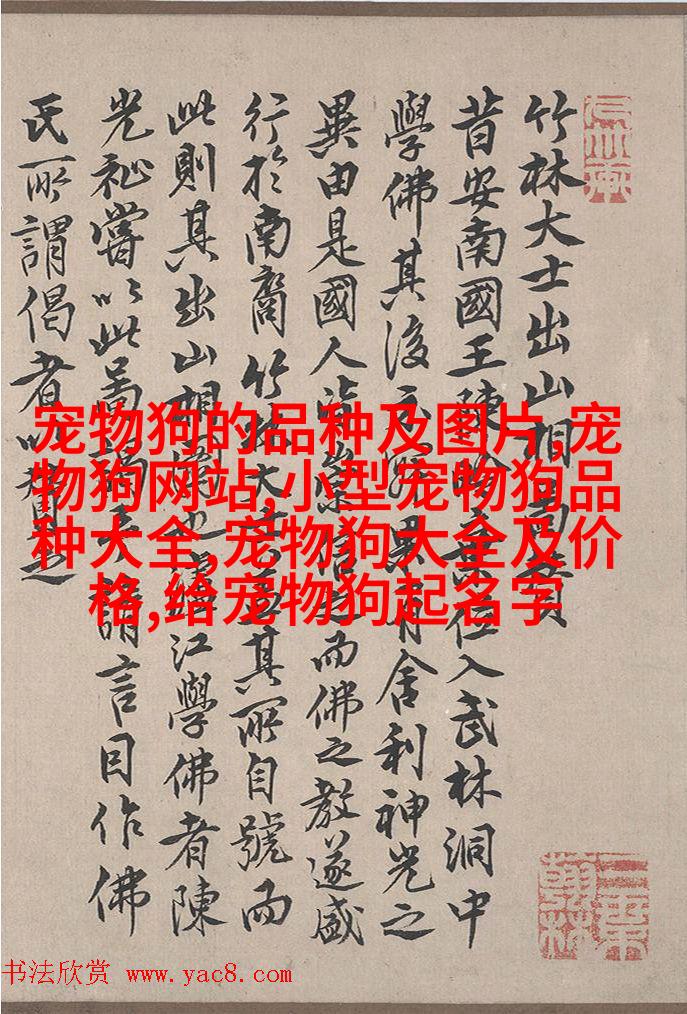 竹林大士出山相圖贊
昔安南國王陳 仕入武林洞中
學佛其後 有舍利神光之
異由是國人皆崇信之而佛之教遂盛
行於南裔竹林大 其所自號而
此則其出山相 也 江學佛者陳
光祉嘗以此 請言因作佛
氏所謂偈者以贊之
宠物狗的品种及图片,宠
物狗网站,小型宠物狗品
种大全,宠物狗大全及价
格,给宠物狗起名字
书法欣赏 www.yac8.com